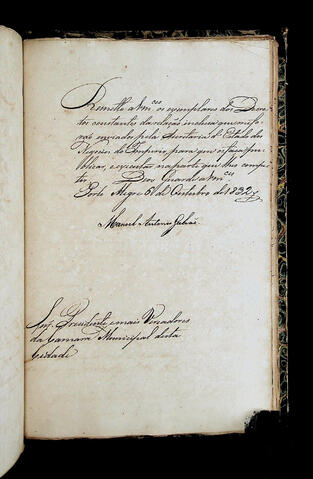 Remetto a Vm.ces os exemplares dos Decre-
tos constantes da relação inclusa que me fo-
rão enviados pela Secretaria d'Estado dos
Negocios do Imperio, para que os faça pu-
blicar, e executar na parte que lhes compe-
te. Deos Guarde a Vm.ces
Porto Alegre 6 de Outubro de 1832
Manoel Antonio Galvão
Snr.s Presidente, e mais Vereadores
da Camara Municipal desta
Cidade